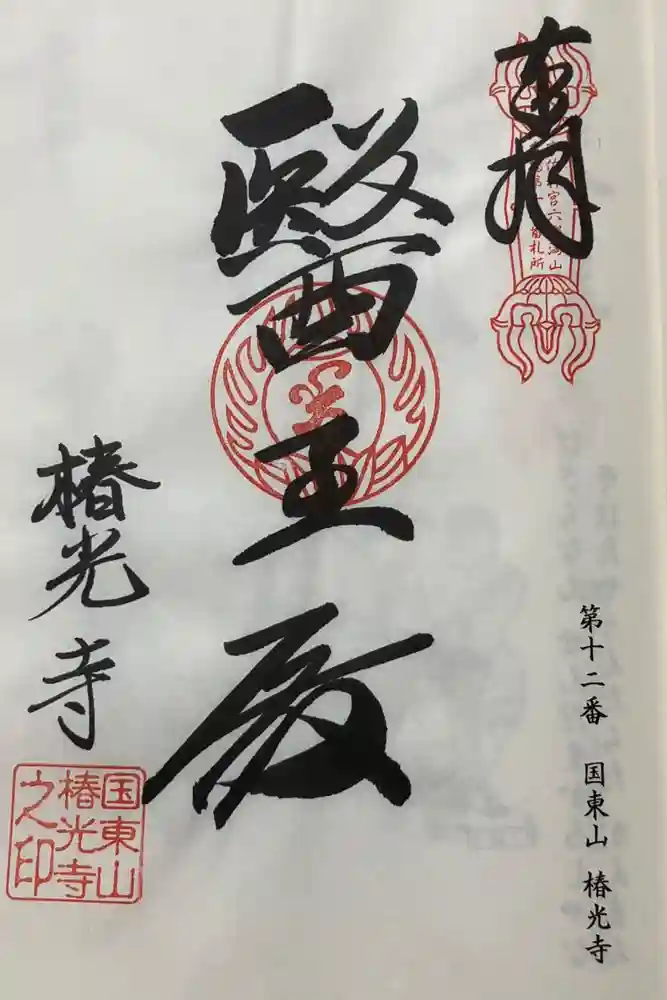 奉拝
第十二番 国東山 椿光寺
醫王殿
椿光寺
国東山
椿光寺
之印